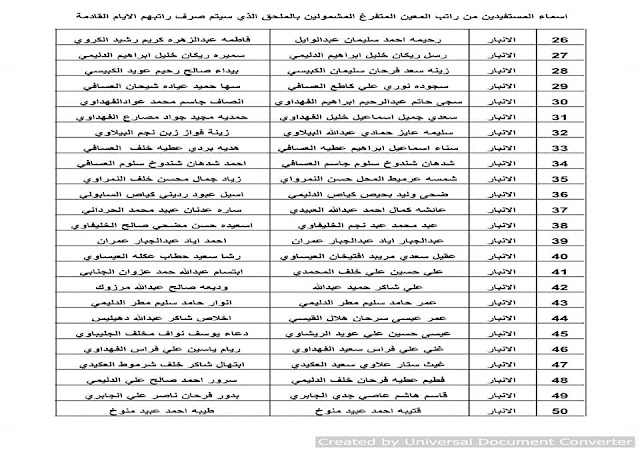 اسماء المستفيدين من راتب المعين المتفرغ المشمولين بالملحق الذي سيتم صرف راتبهم الايام القادمة
26 الانبار رحيمه احمد سليمان عبدالوايل فاطمه عبدالزهره كريم رشيد الكروي
27 الانبار رسل ريكان خليل ابراهيم الدليمي سميره ريكان خليل ابراهيم الدليمي
28 الانبار زينه سعد فرحان سليمان الكبيسي بيداء صالح رحيم عويد الكبيسي
29 الانبار سجوده نوري علي كاطع العسافي سها حميد عياده شيحان العسافي
30 الانبار سجى حاتم عبدالرحيم ابراهيم الفهداوي انصاف جاسم محمد عوادالفهداوي
31 الانبار سعدي جميل اسماعيل خليل الفهداوي حمديه مجيد جواد مصارع الفهداوي
32 الانبار سليمه عايز حمادي عبدالله البيلاوي زينة فواز زبن نجم البيلاوي
33 الانبار سناء اسماعيل ابراهيم عطيه العسافي هديه بردي عطيه خلف العسافي
34 الانبار شدهان شندوخ سلوم جاسم العسافي احمد شدهان شندوخ سلوم العسافي
35 الانبار شمسه عرميط المحل حسن النمرواي زياد جمال محسن خلف النمراوي
36 الانبار ضحى وليد بحيص كياص الدليمي اسيل عبود رديني كياص السابولي
37 الانبار عائشه كمال احمد عبدالله العبيدي ساره عدنان عبيد محمد الحرداني
38 الانبار عبد محمد عبد نجم الخليفاوي اسعيده حسن مضحي صالح الخليفاوي
39 الانبار عبدالجبار اياد عبدالجبار عمران احمد اياد عبدالجبار عمران
40 الانبار عقيل سعدي مربد افتيخان العيساوي رشا سعيد حطاب عكله العيساوي
41 الانبار علي حسين علي خلف المحمدي ابتسام عبدالله حمد عزوان الجنابي
42 الانبار علي شاكر حميد عبدالله وديعه صالح عبدالله مرزوك
43 الانبار عمر حامد سليم مطر الدليمي انوار حامد سليم مطر الدليمي
44 الانبار عمر عيسى سرحان هلال القيسي اخلاص شاكر عبدالله دهيليس
45 الانبار عيسى حسين علي عويد الريشاوي دعاء يوسف نواف مخلف الجليباوي
46 الانبار غني علي فراس سعيد الفهداوي ريام ياسين علي فراس الفهداوي
47 الانبار غيث ستار علاوي سعيد العكيدي ابتهال شاكر خلف شرموط العكيدي
48 الانبار فطيم عطيه فرحان خلف الدليمي سرور احمد صالح علي الدليمي
49 الانبار قاسم هاشم عاصي جدي الجابري بدور فرحان ناصر علي الجابري
50 الانبار قتيبه احمد عبيد منوخ طيبه احمد عبيد منوخ
Created by Universal Document Converter